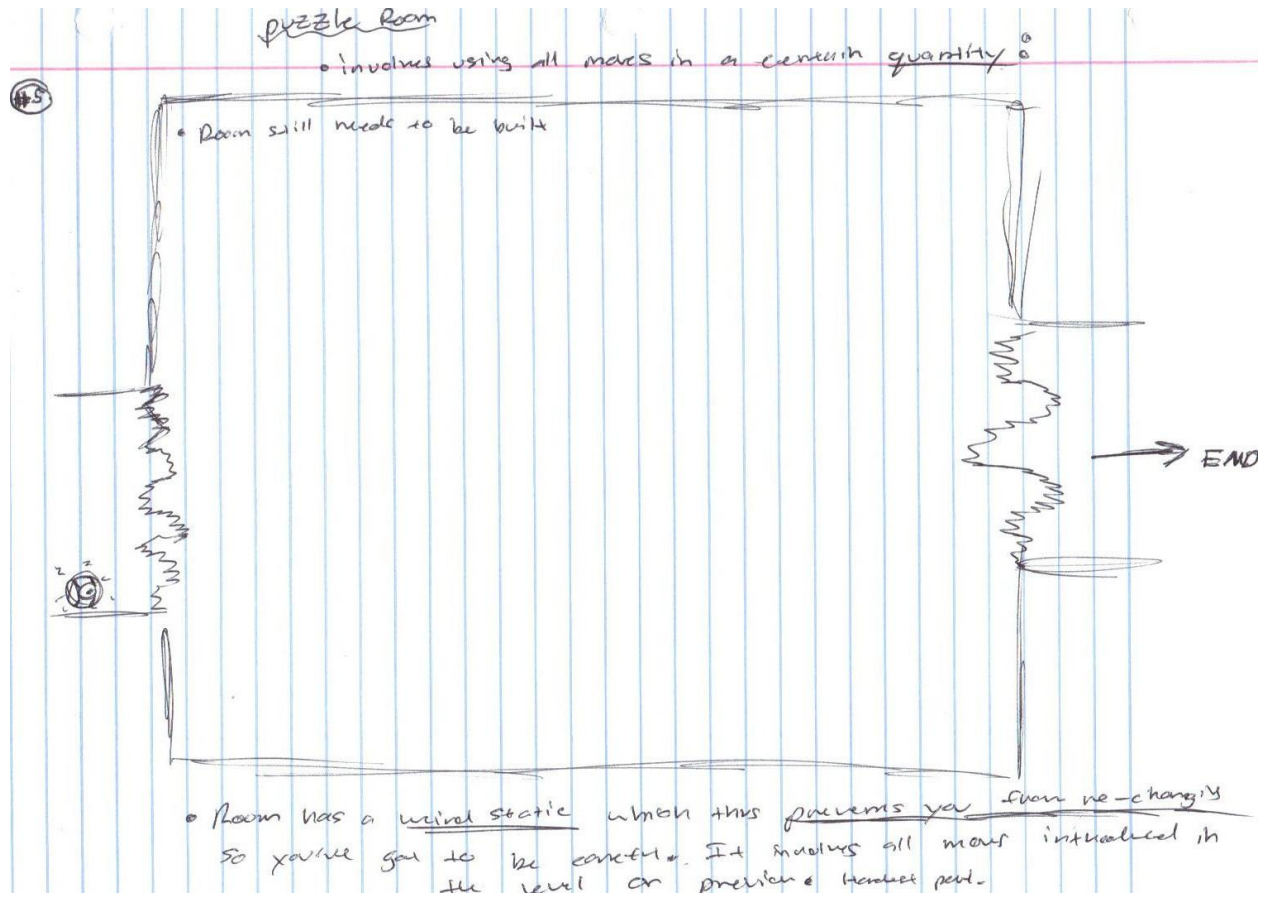 puzzle Room
• involves using all moves in a certain quantity
#5
• Room still needs to be built
END
• Room has a weird static which thus prevents you from re-charging
so you've got to be careful. It involves all moves introduced in
the level or previous. Hardest part.